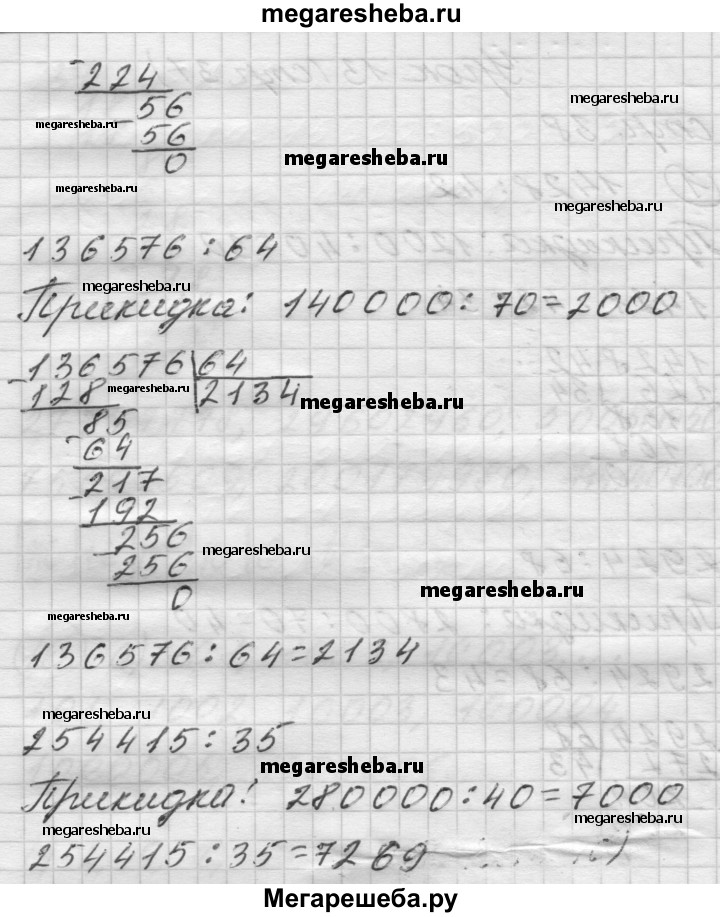 megaresheba.ru
- 224
56
megaresheba.ru
megaresheba.ru
- 56
0
megaresheba.ru
megaresheba.ru
megaresheba.ru
136576 : 64
megaresheba.ru
Прикидка: 140000 : 70 = 2000
- 136576 | 64
128 megaresheba.ru 2134 megaresheba.ru
85
- 64
217
- 192
256 megaresheba.ru
- 256
megaresheba.ru
0
megaresheba.ru
136576 : 64 = 2134
megaresheba.ru
254415 : 35
megaresheba.ru
Прикидка: 280000 : 40 = 7000
megaresheba.ru
megaresheba.ru
254415 : 35 = 7269
Мегарешеба.ру